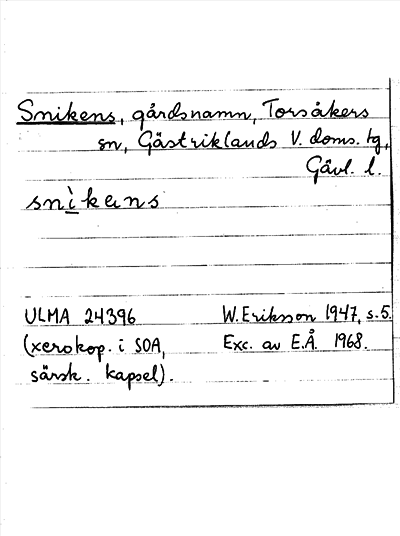 Snikens, gårdsnamn, Torsåkers
sn, Gästriklands V. doms. tg,
Gävl. l.
snìkens
ULMA 24396 W. Eriksson 1947, s. 5.
(xerokop. i SOA, Exc. av E.Å. 1968.
särsk. kapsel).